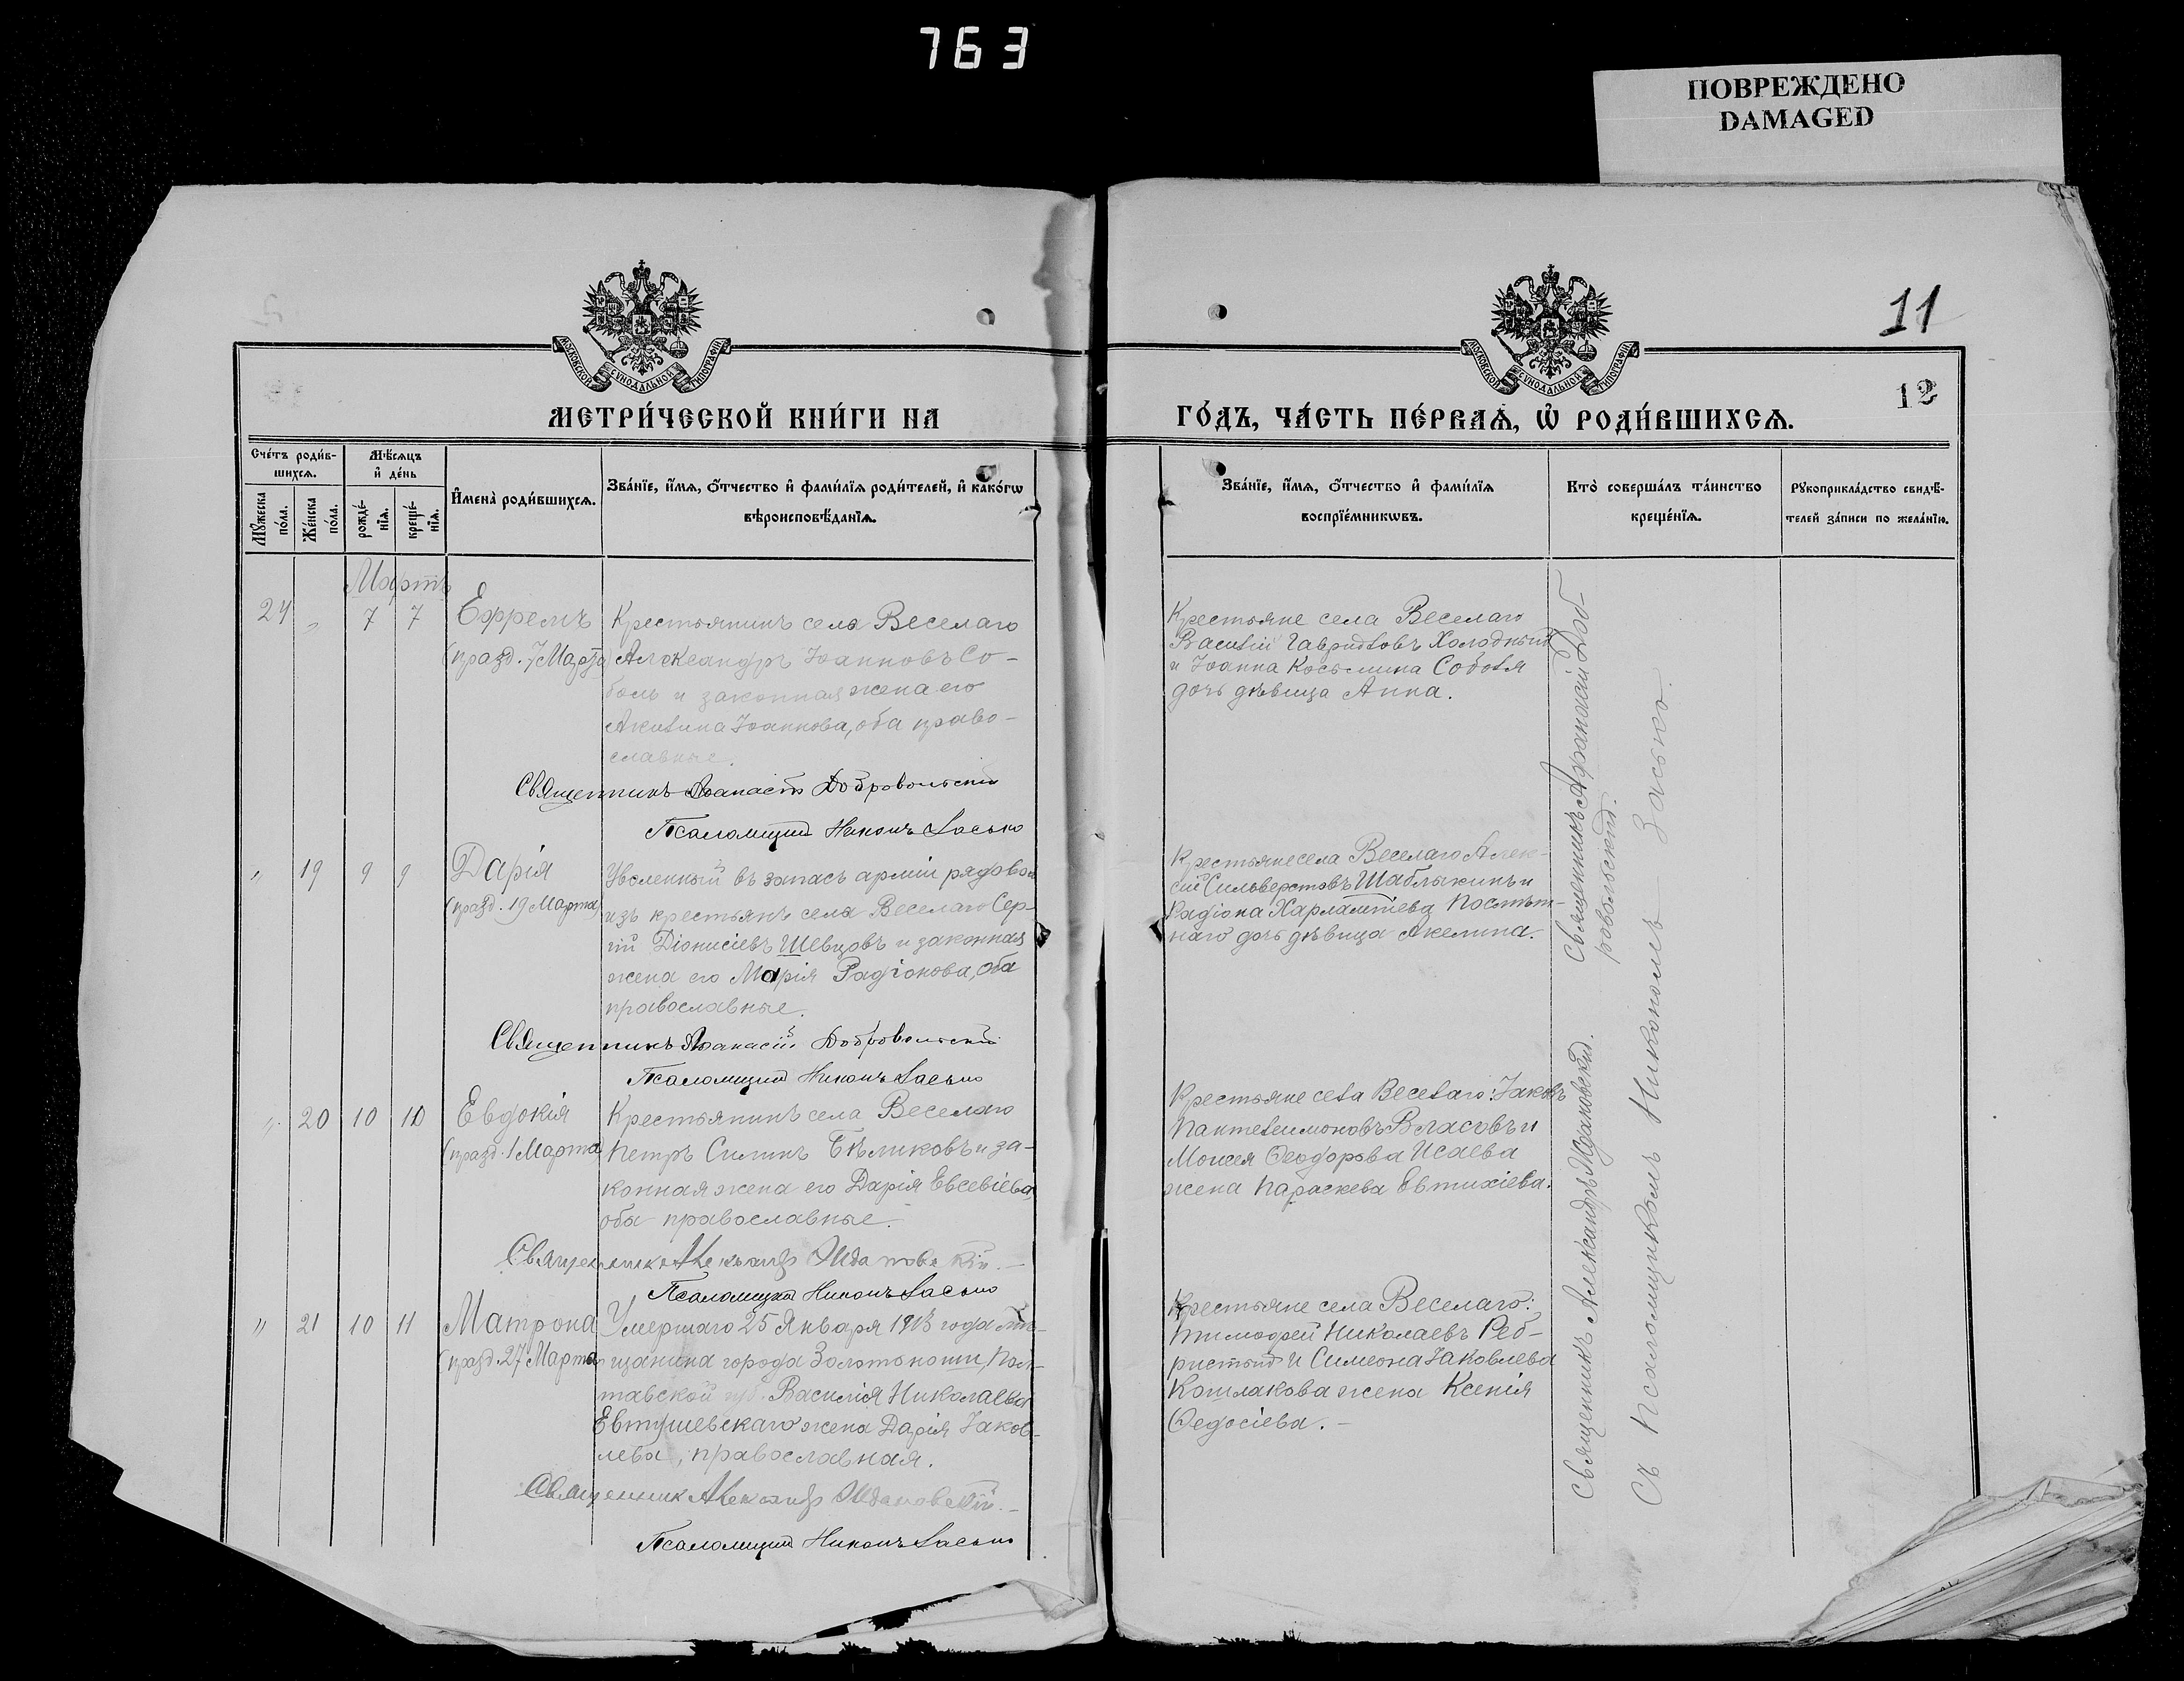 763
ПОВРЕЖДЕНО
DAMAGED
11
12
МОСКОВСКОЙ СѴНОДАЛЬНОЙ ТИПОГРАФІИ
МОСКОВСКОЙ СѴНОДАЛЬНОЙ ТИПОГРАФІИ
МЕТРИ́ЧЕСКОЙ КНИ́ГИ НА
ГО́ДЪ, ЧА́СТЬ ПЕ́РВАѦ, Ѡ РОДИ́ВШИХСѦ.
Сче́тъ роди́в-
шихсѧ.
Мѣ́сѧцъ
и҆ де́нь
Мꙋ́жеска
по́ла.
Же́нска
по́ла.
рожде́-
нїѧ.
креще́-
нїѧ.
И҆мена̀ роди́вшихсѧ.
Зва́нїе, и҆́мѧ, ѻ҆́тчество и҆ фами́лїѧ роди́телей, и҆ како́гѡ
вѣроисповѣ́данїѧ.
Зва́нїе, и҆́мѧ, ѻ҆́тчество и҆ фами́лїѧ
воспрїе́мникѡвъ.
Кто̀ соверша́лъ та́инство
креще́нїѧ.
Рꙋкоприкла́дство свидѣ́-
телей за́писи по жела́нїю.
Мартъ
24 " 7 7 Ефремъ
(празд. 7 Марта)
Крестьянинъ села Веселаго
Александръ Іоанновъ Со-
боль и законная жена его
Акилина Іоаннова, оба право-
славные.
Священникъ Аѳанасій Добровольскій
Псаломщикъ Никонъ Засько
Крестьяне села Веселаго
Василій Гавриловъ Холодный
и Іоанна Косьмина Соболя
дочь дѣвица Анна.
" 19 9 9 Дарія
(празд. 19 Марта)
Уволенный въ запасъ арміи рядовой
изъ крестьянъ села Веселаго Сер-
гій Діонисіевъ Шевцовъ и законная
жена его Марія Радіонова, оба
православные.
Священникъ Аѳанасій Добровольскій
Псаломщикъ Никонъ Засько
Крестьяне села Веселаго Алек-
сій Сильверстовъ Шаблыкинъ и
Радіона Харлампіева
наго дочь дѣвица Акелина.
" 20 10 10 Евдокія
(празд. 1 Марта)
Крестьянинъ села Веселаго
Петръ Силинъ Бѣликовъ и за-
конная жена его Дарія Евсевіева,
оба православные.
Священникъ Александръ Ждановскій.
Псаломщикъ Никонъ Засько
Крестьяне села Веселаго: Іаковъ
Пантелеимоновъ Власовъ и
Моисея Ѳеодорова Исаева
жена Параскева Евтихіева.
" 21 10 11 Матрона
(празд. 27 Марта)
Умершаго 25 Января 1913 года мѣ-
щанина города Золотоноши, Пол-
тавской губ. Василія Николаева
Евтушевскаго жена Дарія Іаков-
лева, православная.
Священникъ Александръ Ждановскій.
Псаломщикъ Никонъ Засько
Крестьяне села Веселаго:
Тимоѳей Николаевъ Реб-
ристый и Симеона Іаковлева
Кошлакова жена Ксенія
Ѳедосіева.
Священникъ Аѳанасій Доб-
ровольскій.
Священникъ Александръ Ждановскій.
Съ Псаломщикомъ Никономъ Засько.